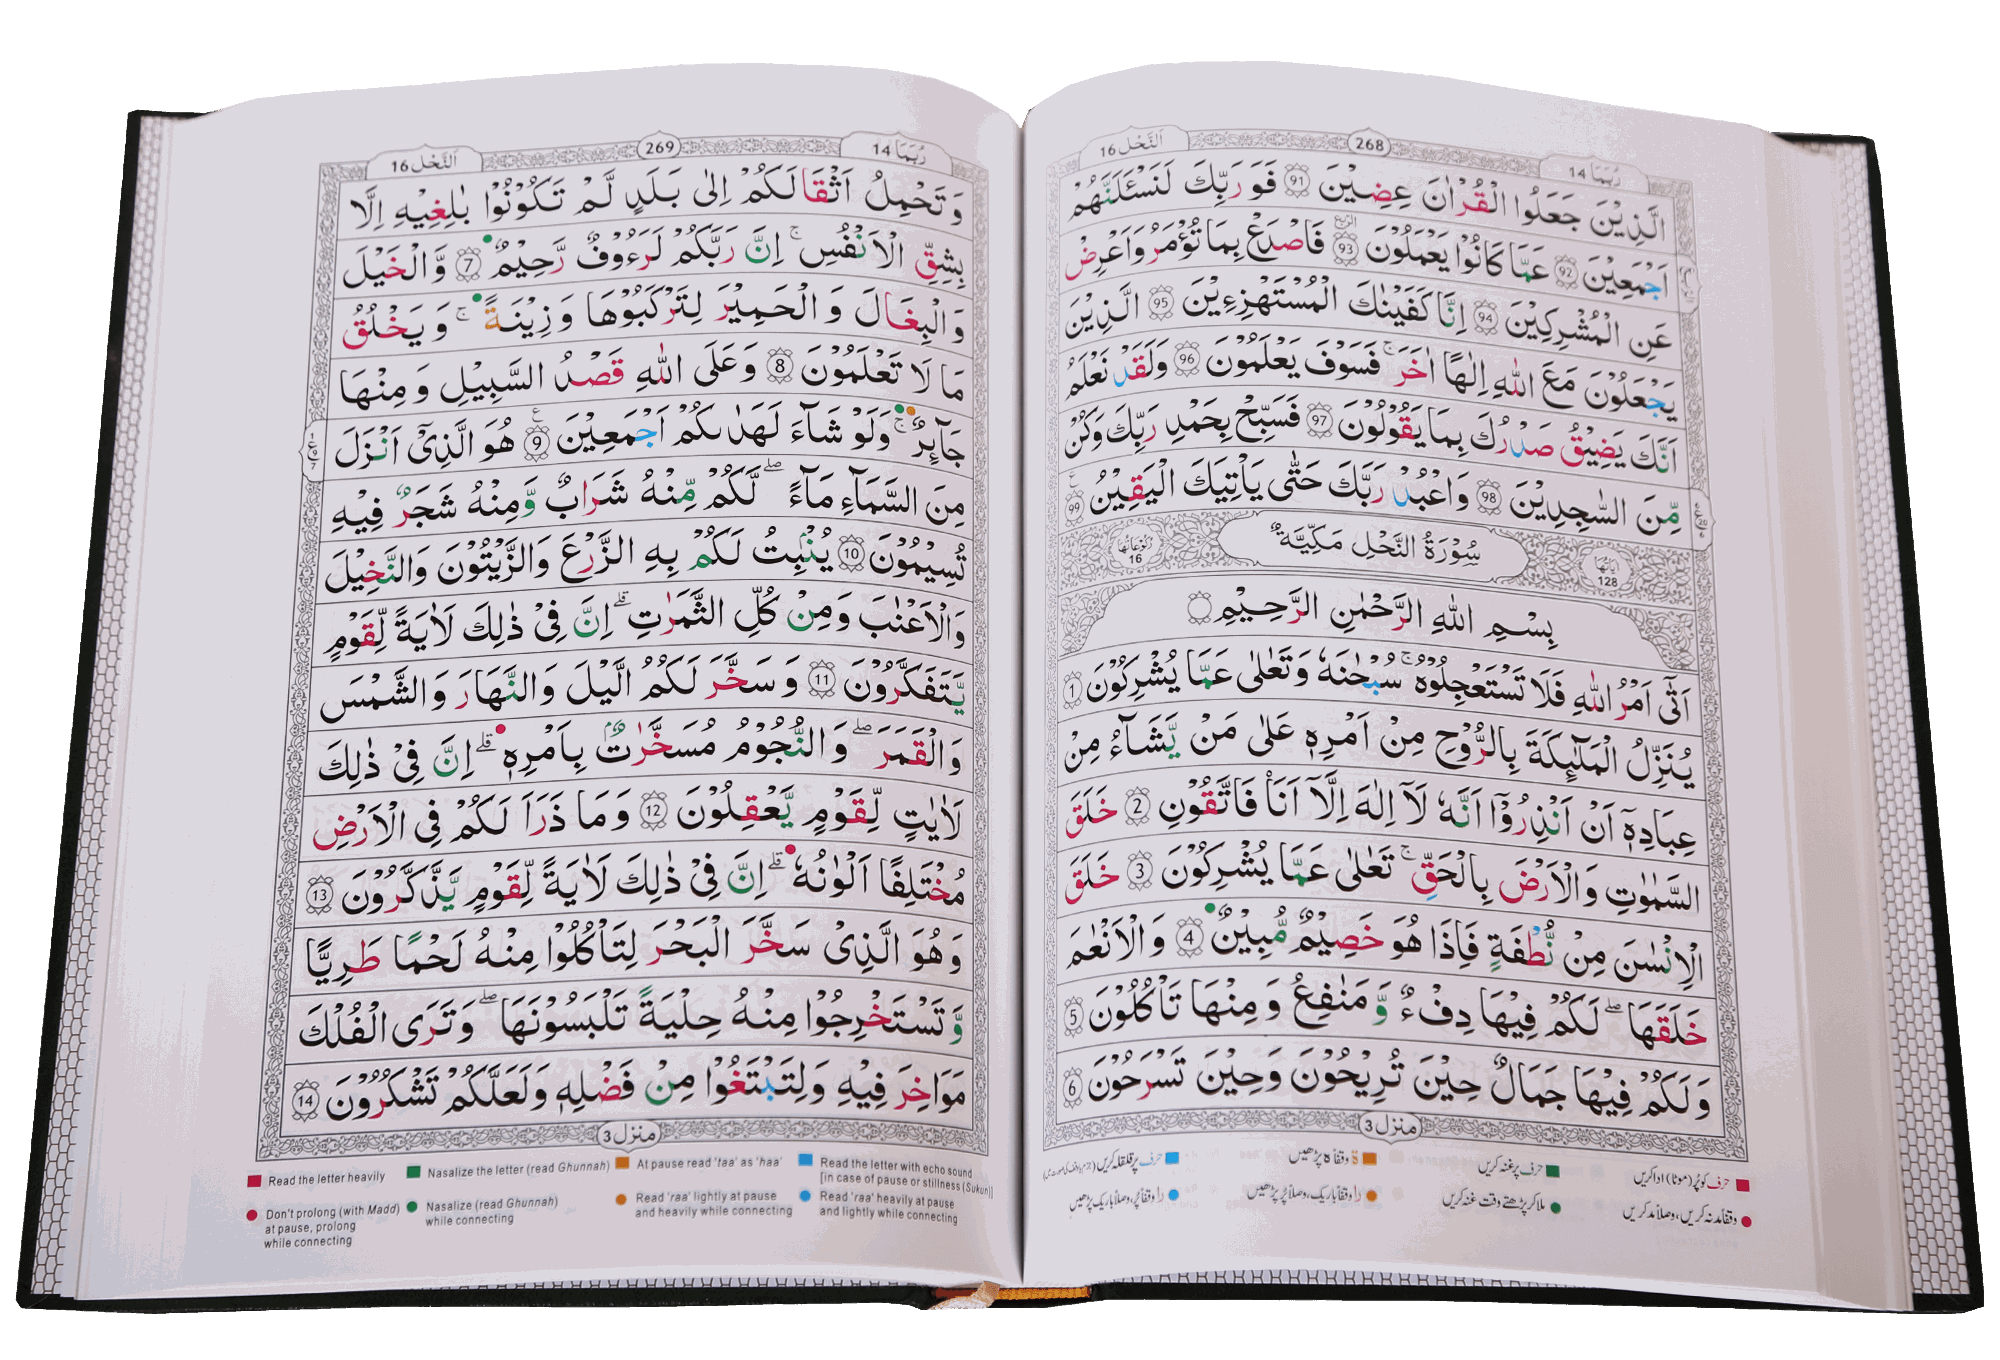 رُبَمَا 14
268
اَلنَّحْل 16
الَّذِيْنَ جَعَلُوا الْقُرْاٰنَ عِضِيْنَ 91 فَوَرَبِّكَ لَنَسْـَٔلَنَّهُمْ
اَجْمَعِيْنَ 92 عَمَّا كَانُوْا يَعْمَلُوْنَ 93 فَاصْدَعْ بِمَا تُؤْمَرُ وَاَعْرِضْ
عَنِ الْمُشْرِكِيْنَ 94 اِنَّا كَفَيْنٰكَ الْمُسْتَهْزِءِيْنَ 95 الَّذِيْنَ
يَجْعَلُوْنَ مَعَ اللّٰهِ اِلٰهًا اٰخَرَ ۚ فَسَوْفَ يَعْلَمُوْنَ 96 وَلَقَدْ نَعْلَمُ
اَنَّكَ يَضِيْقُ صَدْرُكَ بِمَا يَقُوْلُوْنَ 97 فَسَبِّحْ بِحَمْدِ رَبِّكَ وَكُنْ
مِّنَ السّٰجِدِيْنَ 98 وَاعْبُدْ رَبَّكَ حَتّٰى يَاْتِيَكَ الْيَقِيْنُ 99
اٰيَاتُهَا 128
سُوْرَةُ النَّحْلِ مَكِّيَّةٌ
رُكُوْعَاتُهَا 16
بِسْمِ اللّٰهِ الرَّحْمٰنِ الرَّحِيْمِ
اَتٰۤى اَمْرُ اللّٰهِ فَلَا تَسْتَعْجِلُوْهُ ۚ سُبْحٰنَهٗ وَتَعٰلٰى عَمَّا يُشْرِكُوْنَ 1
يُنَزِّلُ الْمَلٰٓئِكَةَ بِالرُّوْحِ مِنْ اَمْرِهٖ عَلٰى مَنْ يَّشَآءُ مِنْ
عِبَادِهٖۤ اَنْ اَنْذِرُوْۤا اَنَّهٗ لَاۤ اِلٰهَ اِلَّاۤ اَنَا فَاتَّقُوْنِ 2 خَلَقَ
السَّمٰوٰتِ وَالْاَرْضَ بِالْحَقِّ ۚ تَعٰلٰى عَمَّا يُشْرِكُوْنَ 3 خَلَقَ
الْاِنْسٰنَ مِنْ نُّطْفَةٍ فَاِذَا هُوَ خَصِيْمٌ مُّبِيْنٌ 4 وَالْاَنْعٰمَ
خَلَقَهَا ۖ لَكُمْ فِيْهَا دِفْءٌ وَّمَنٰفِعُ وَمِنْهَا تَاْكُلُوْنَ 5
وَلَكُمْ فِيْهَا جَمَالٌ حِيْنَ تُرِيْحُوْنَ وَحِيْنَ تَسْرَحُوْنَ 6
منزل 3
حرف کو پُر (موٹا) ادا کریں
حرف پر غنہ کریں
ۃ وقفاً ہ پڑھیں
حرف پر قلقلہ کریں
وقفاً مد نہ کریں، وصلاً مد کریں
ملا کر پڑھتے وقت غنہ کریں
را وقفاً باریک، وصلاً پُر پڑھیں
را وقفاً پُر، وصلاً باریک پڑھیں
رُبَمَا 14
269
اَلنَّحْل 16
وَتَحْمِلُ اَثْقَالَكُمْ اِلٰى بَلَدٍ لَّمْ تَكُوْنُوْا بٰلِغِيْهِ اِلَّا
بِشِقِّ الْاَنْفُسِ ۚ اِنَّ رَبَّكُمْ لَرَءُوْفٌ رَّحِيْمٌ 7 وَّالْخَيْلَ
وَالْبِغَالَ وَالْحَمِيْرَ لِتَرْكَبُوْهَا وَزِيْنَةً ۚ وَيَخْلُقُ
مَا لَا تَعْلَمُوْنَ 8 وَعَلَى اللّٰهِ قَصْدُ السَّبِيْلِ وَمِنْهَا
جَآئِرٌ ۚ وَلَوْ شَآءَ لَهَدٰىكُمْ اَجْمَعِيْنَ 9 هُوَ الَّذِيْۤ اَنْزَلَ
مِنَ السَّمَآءِ مَآءً ۖ لَّكُمْ مِّنْهُ شَرَابٌ وَّمِنْهُ شَجَرٌ فِيْهِ
تُسِيْمُوْنَ 10 يُنْۢبِتُ لَكُمْ بِهِ الزَّرْعَ وَالزَّيْتُوْنَ وَالنَّخِيْلَ
وَالْاَعْنٰبَ وَمِنْ كُلِّ الثَّمَرٰتِ ۗ اِنَّ فِيْ ذٰلِكَ لَاٰيَةً لِّقَوْمٍ
يَّتَفَكَّرُوْنَ 11 وَسَخَّرَ لَكُمُ الَّيْلَ وَالنَّهَارَ وَالشَّمْسَ
وَالْقَمَرَ ۖ وَالنُّجُوْمُ مُسَخَّرٰتٌۢ بِاَمْرِهٖ ۗ اِنَّ فِيْ ذٰلِكَ
لَاٰيٰتٍ لِّقَوْمٍ يَّعْقِلُوْنَ 12 وَمَا ذَرَاَ لَكُمْ فِى الْاَرْضِ
مُخْتَلِفًا اَلْوٰنُهٗ ۗ اِنَّ فِيْ ذٰلِكَ لَاٰيَةً لِّقَوْمٍ يَّذَّكَّرُوْنَ 13
وَهُوَ الَّذِيْ سَخَّرَ الْبَحْرَ لِتَاْكُلُوْا مِنْهُ لَحْمًا طَرِيًّا
وَّتَسْتَخْرِجُوْا مِنْهُ حِلْيَةً تَلْبَسُوْنَهَا ۖ وَتَرَى الْفُلْكَ
مَوَاخِرَ فِيْهِ وَلِتَبْتَغُوْا مِنْ فَضْلِهٖ وَلَعَلَّكُمْ تَشْكُرُوْنَ 14
منزل 3
Read the letter heavily
Nasalize the letter (read Ghunnah)
At pause read 'taa' as 'haa'
Read the letter with echo sound
[in case of pause or stillness (Sukun)]
Don't prolong (with Madd)
at pause, prolong
while connecting
Nasalize (read Ghunnah)
while connecting
Read 'raa' lightly at pause
and heavily while connecting
Read 'raa' heavily at pause
and lightly while connecting